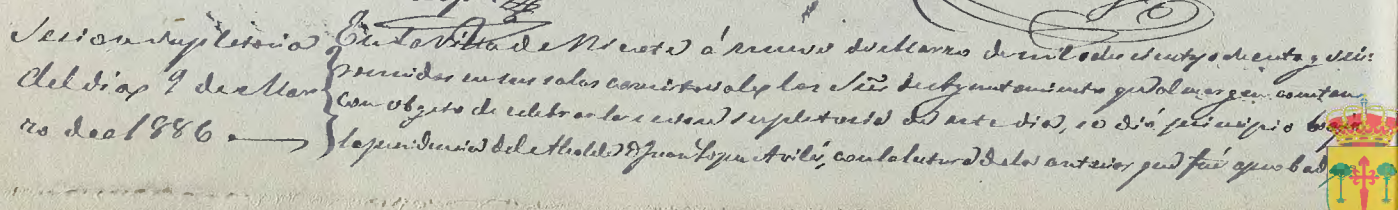 Sesion supletoria
del dia 9 de Mar
zo de 1886.
En la Villa de Nerpio á nueve de Marzo de mil ochocientos ochenta y seis
reunidos en sus salas consistoriales los Sres. de Ayuntamiento que al margen constan
con objeto de celebrar la sesion supletoria de este dia, se dió principio bajo
la presidencia del Alcalde D. Juan Lopez Avilés, con la lectura de la anterior que fué aprobada